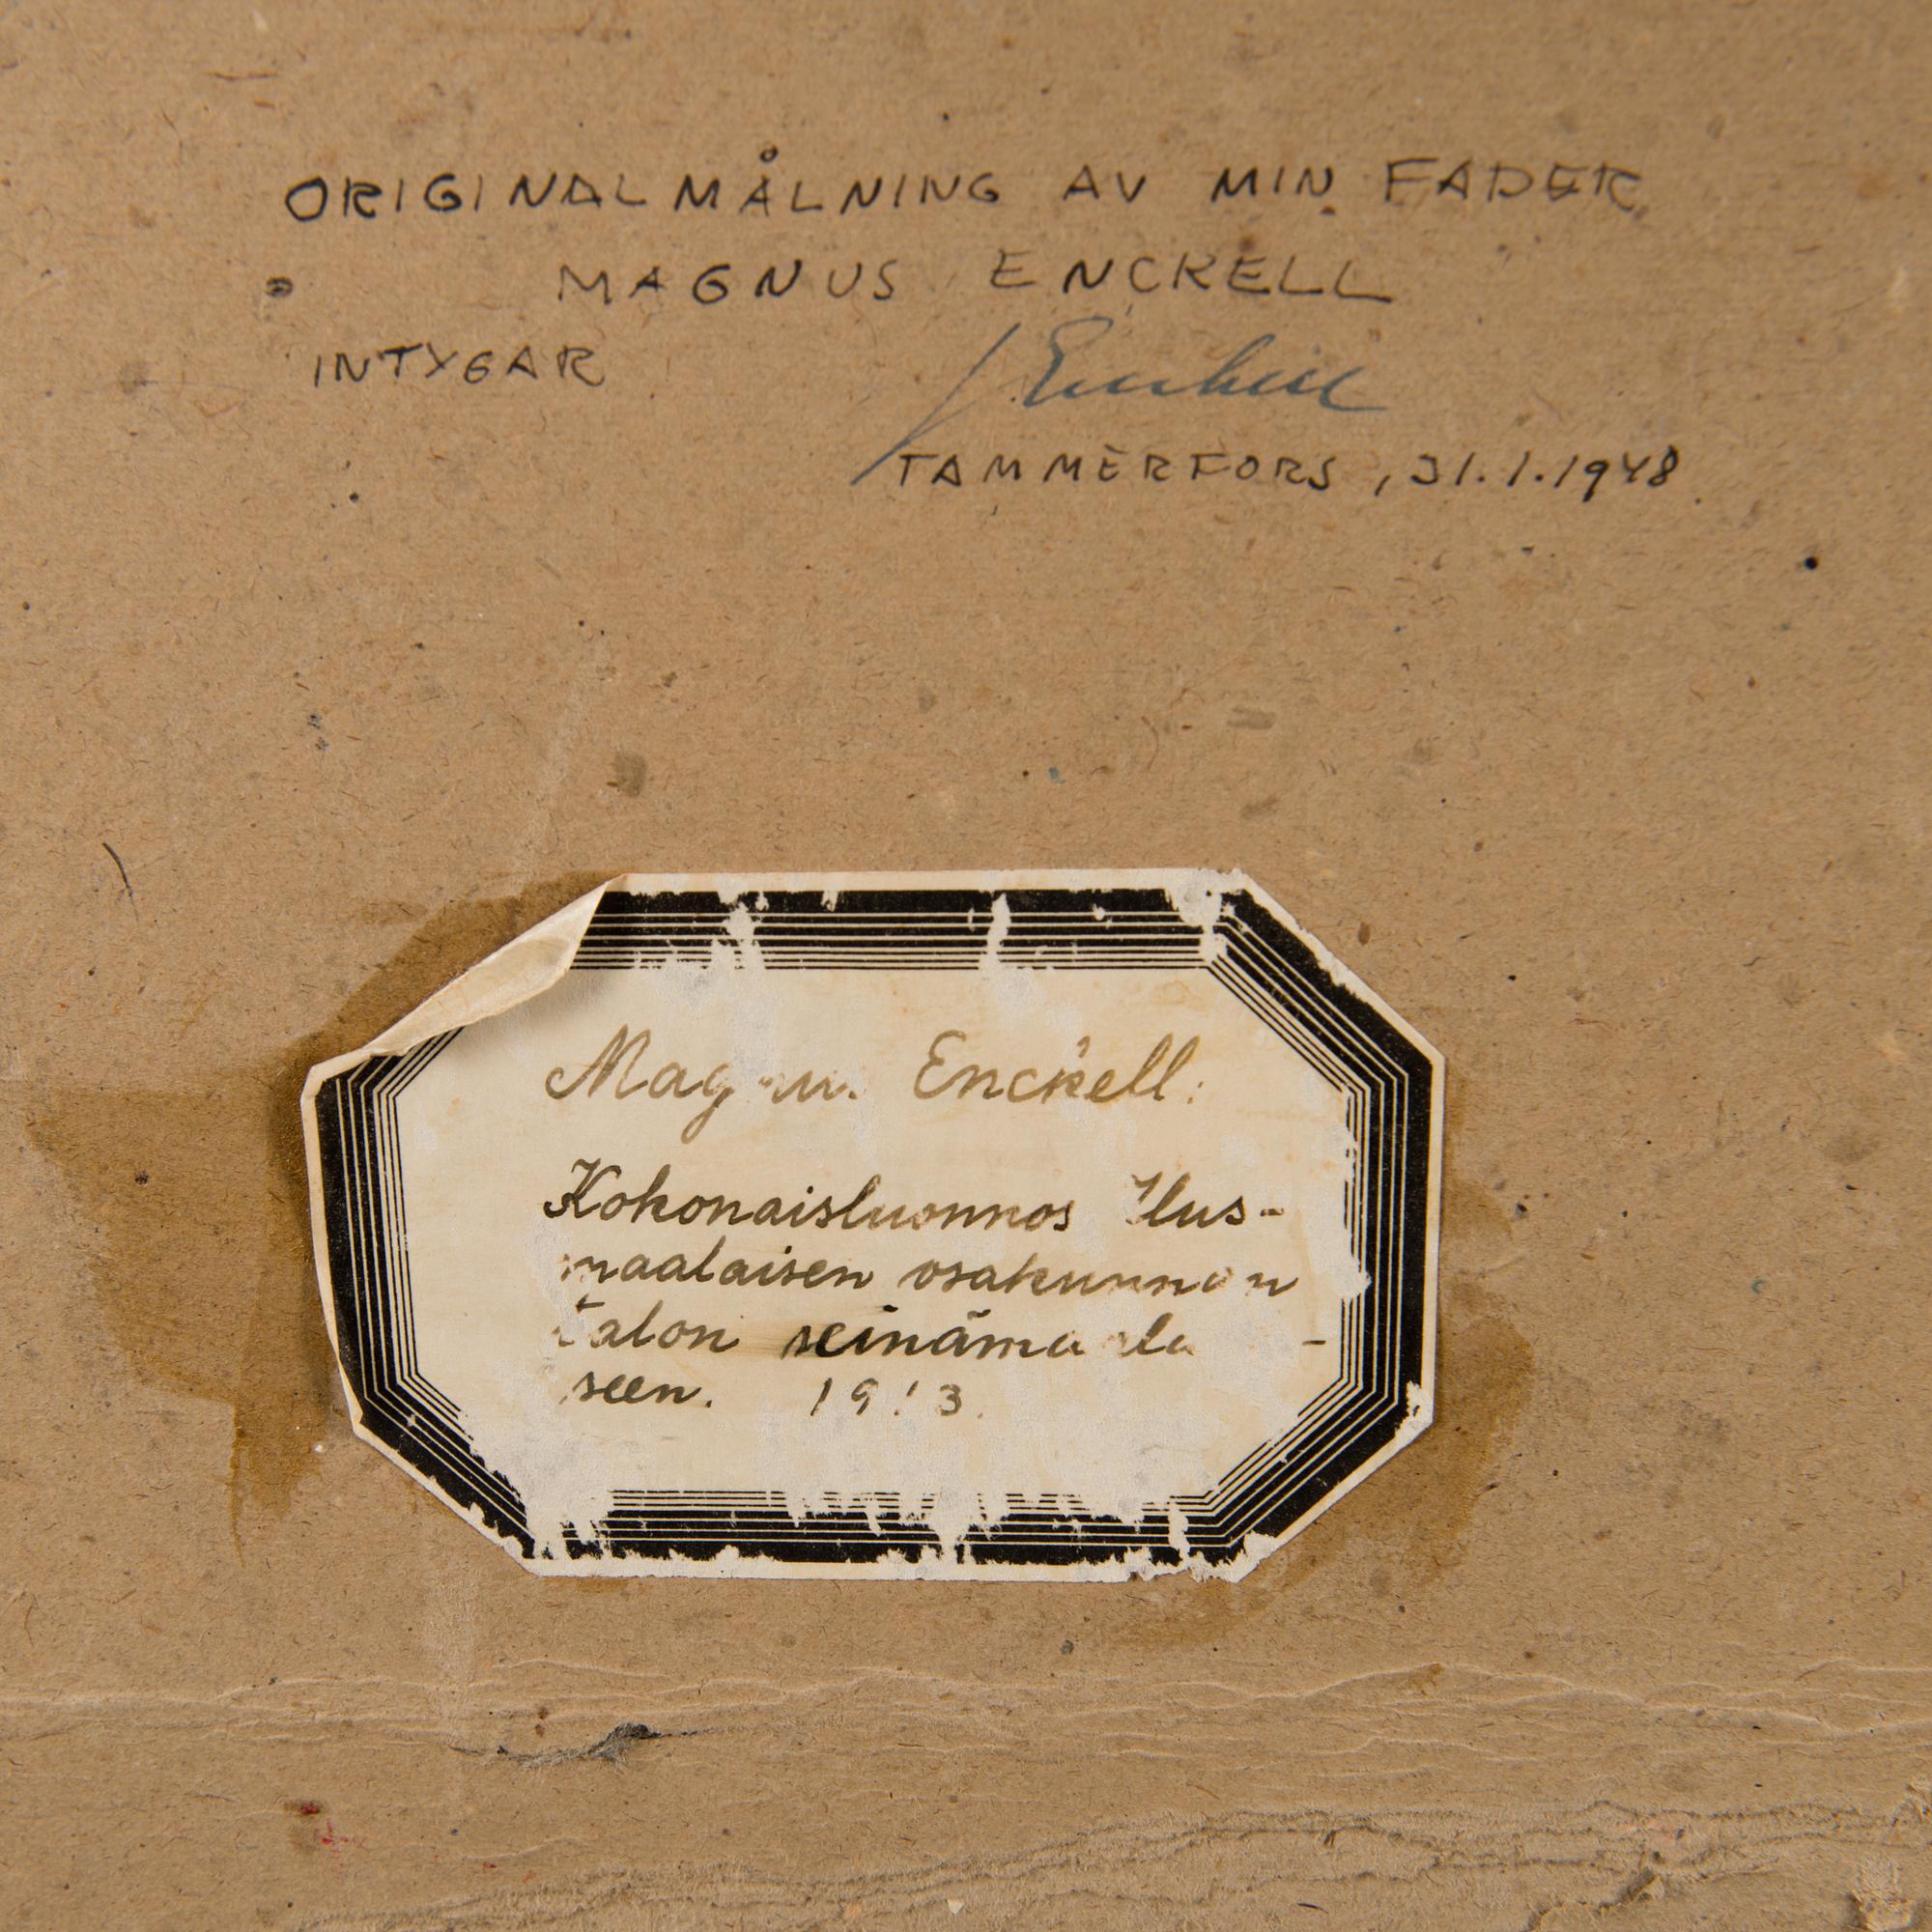 ORIGINALMÅLNING AV MIN FADER
MAGNUS ENCKELL
INTYGAR
TAMMERFORS, 31.1.1948
Enckell:
Kokonaisluonnos
maalaisen osakunnan
talon
seen. 1913.